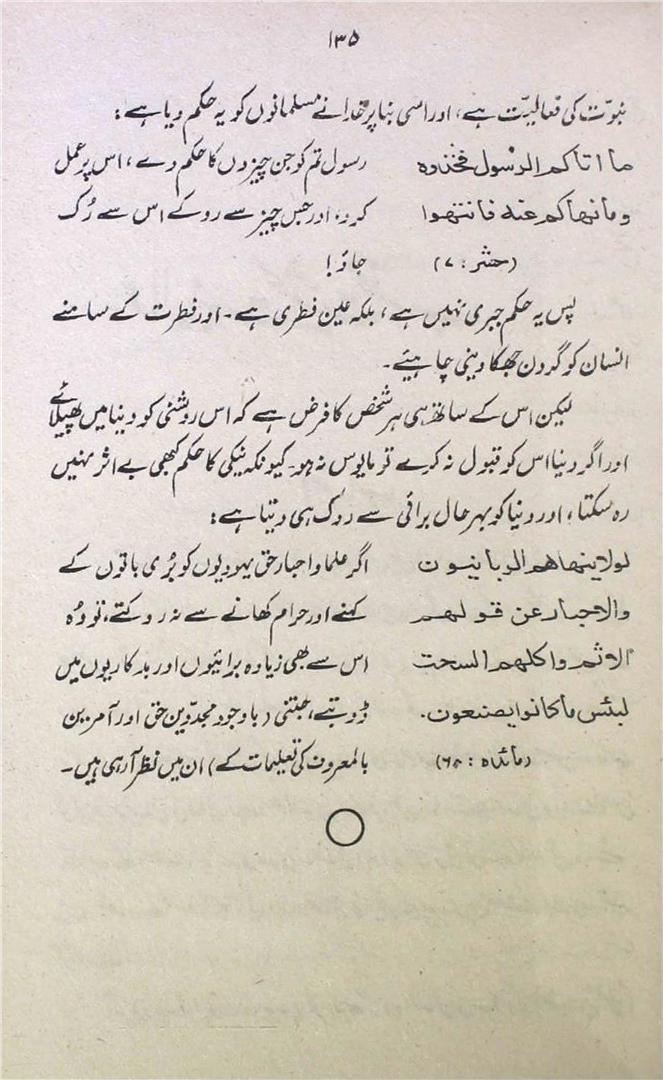 ۱۳۵
نبوّت کی فعالیت ہے، اور اسی بنا پر خدا نے مسلمانوں کو یہ حکم دیا ہے:
ما اتاكم الرسول فخذوه رسول تم کو جن چیزوں کا حکم دے، اس پر عمل
ومانهاكم عنه فانتهوا کرو، اور جس چیز سے روکے اس سے رُک
(حشر: ۷) جاؤ!
پس یہ حکم جبری نہیں ہے، بلکہ عین فطری ہے۔ اور فطرت کے سامنے
انسان کو گردن جھکا دینی چاہیئے۔
لیکن اس کے ساتھ ہی ہر شخص کا فرض ہے کہ اس روشنی کو دنیا میں پھیلائے
اور اگر دنیا اس کو قبول نہ کرے تو مایوس نہ ہو۔ کیونکہ نیکی کا حکم کبھی بے اثر نہیں
رہ سکتا، اور دنیا کو بہرحال برائی سے روک ہی دیتا ہے:
لولاينهاهم الربانيون اگر علما و احبار حق یہودیوں کو بُری باتوں کے
والاحبار عن قولهم کہنے اور حرام کھانے سے نہ روکتے، تو وُہ
الاثم واكلهم السحت اس سے بھی زیادہ برائیوں اور بدکاریوں میں
لبئس ماكانوا يصنعون. ڈوبتے، جتنی (باوجود مجدّدین حق اور آمرین
(مائدہ: ۶۸) بالمعروف کی تعلیمات کے) ان میں نظر آرہی ہیں۔